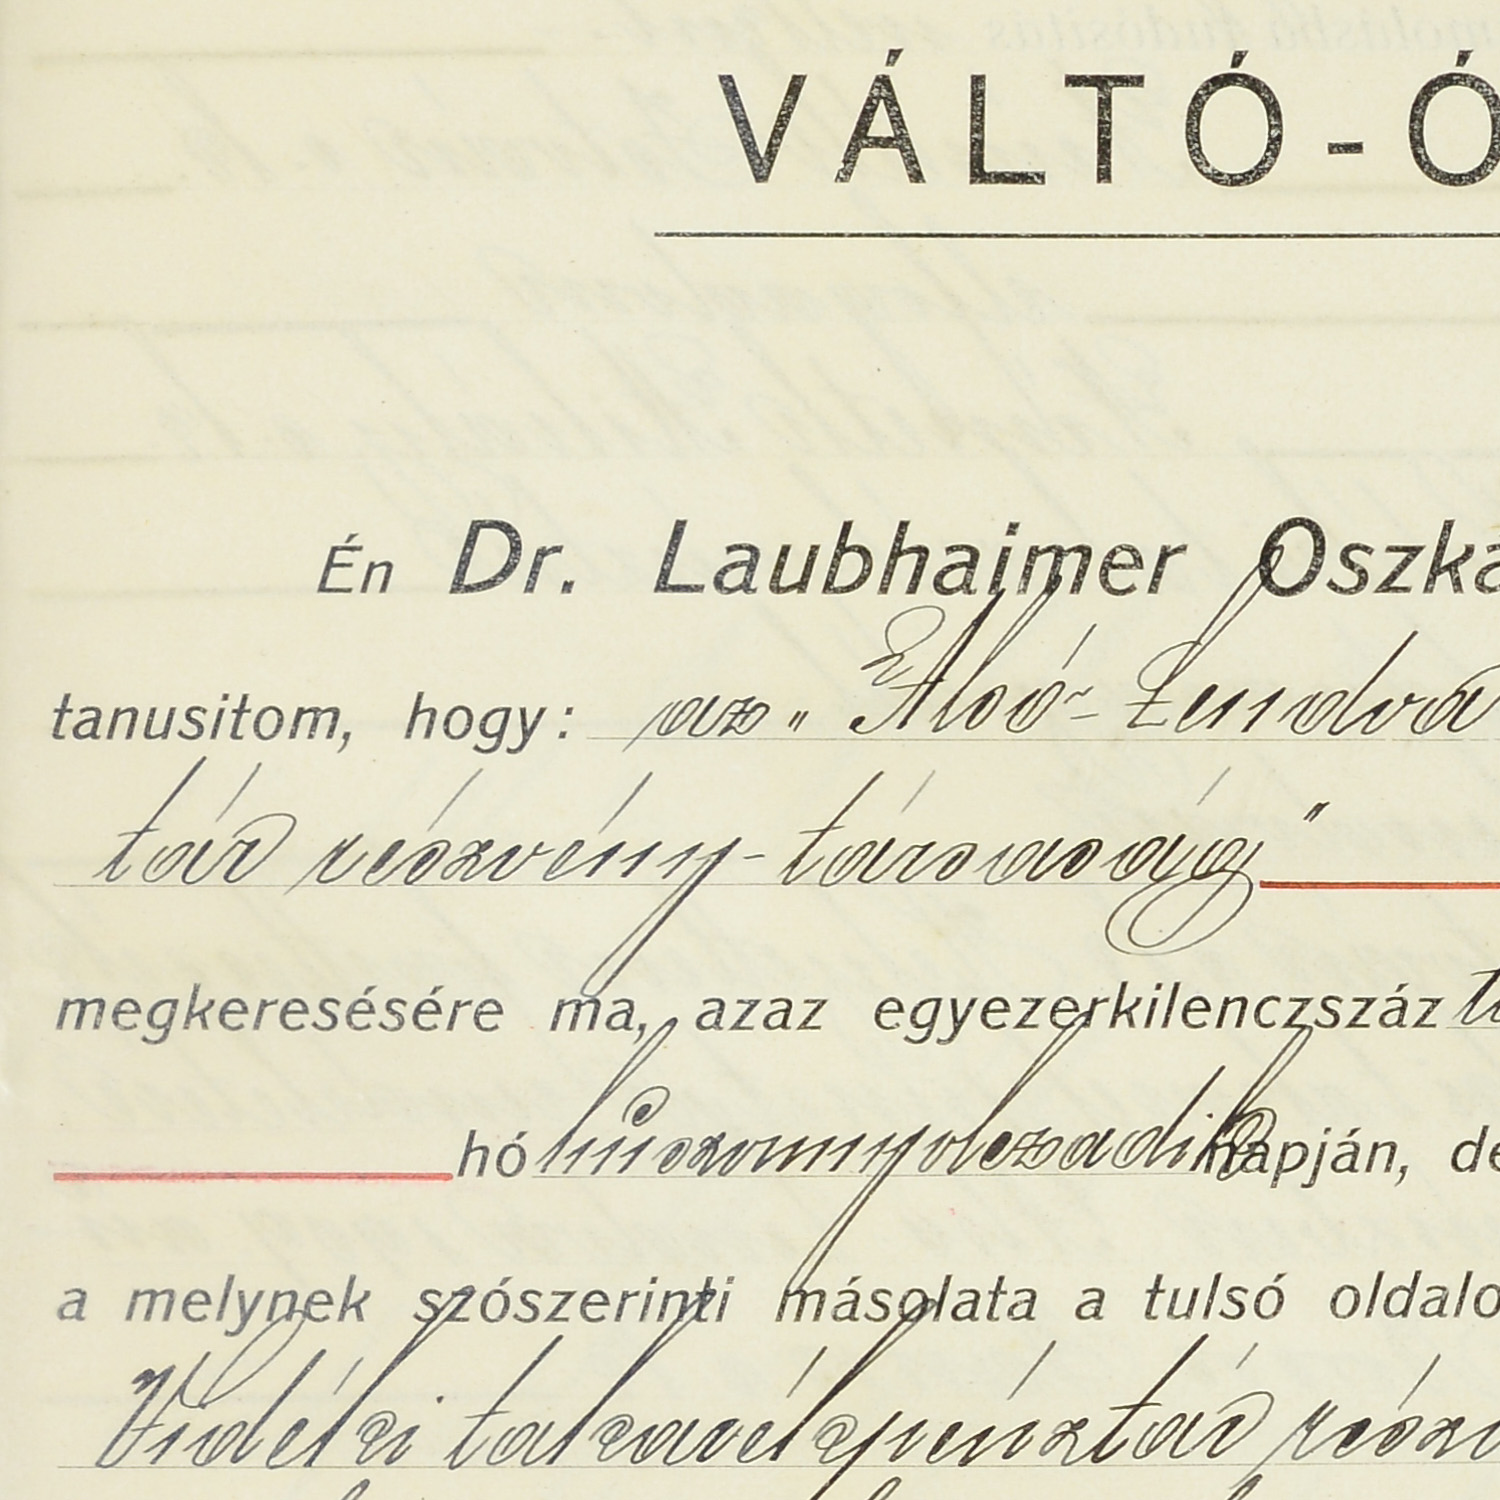 VÁLTÓ-Ó
Én Dr. Laubhaimer Oszká
tanusitom, hogy: az „Alsó-Lendva
tár részvény-társaság"
megkeresésére ma, azaz egyezerkilenczszáz
hó húszonnyolczadik napján, de
a melynek szószerinti másolata a tulsó oldalo
Vidéki takarékpénztár rész